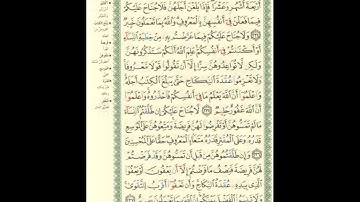 أَرْبَعَةَ أَشْهُرٍ وَعَشْرًا فَإِذَا بَلَغْنَ أَجَلَهُنَّ فَلَا جُنَاحَ عَلَيْكُمْ
فِيمَا فَعَلْنَ فِي أَنفُسِهِنَّ بِالْمَعْرُوفِ وَاللَّهُ بِمَا تَعْمَلُونَ خَبِيرٌ
٢٣٤ وَلَا جُنَاحَ عَلَيْكُمْ فِيمَا عَرَّضْتُم بِهِ مِنْ خِطْبَةِ النِّسَاءِ
أَوْ أَكْنَنتُمْ فِي أَنفُسِكُمْ عَلِمَ اللَّهُ أَنَّكُمْ سَتَذْكُرُونَهُنَّ
وَلَٰكِن لَّا تُوَاعِدُوهُنَّ سِرًّا إِلَّا أَن تَقُولُوا قَوْلًا مَّعْرُوفًا
وَلَا تَعْزِمُوا عُقْدَةَ النِّكَاحِ حَتَّىٰ يَبْلُغَ الْكِتَابُ أَجَلَهُ
وَاعْلَمُوا أَنَّ اللَّهَ يَعْلَمُ مَا فِي أَنفُسِكُمْ فَاحْذَرُوهُ وَاعْلَمُوا
أَنَّ اللَّهَ غَفُورٌ حَلِيمٌ ٢٣٥ لَّا جُنَاحَ عَلَيْكُمْ إِن طَلَّقْتُمُ النِّسَاءَ
مَا لَمْ تَمَسُّوهُنَّ أَوْ تَفْرِضُوا لَهُنَّ فَرِيضَةً وَمَتِّعُوهُنَّ عَلَى الْمُوسِعِ
قَدَرُهُ وَعَلَى الْمُقْتِرِ قَدَرُهُ مَتَاعًا بِالْمَعْرُوفِ حَقًّا عَلَى الْمُحْسِنِينَ
٢٣٦ وَإِن طَلَّقْتُمُوهُنَّ مِن قَبْلِ أَن تَمَسُّوهُنَّ وَقَدْ فَرَضْتُمْ
لَهُنَّ فَرِيضَةً فَنِصْفُ مَا فَرَضْتُمْ إِلَّا أَن يَعْفُونَ أَوْ يَعْفُوَا
الَّذِي بِيَدِهِ عُقْدَةُ النِّكَاحِ وَأَن تَعْفُوا أَقْرَبُ لِلتَّقْوَىٰ